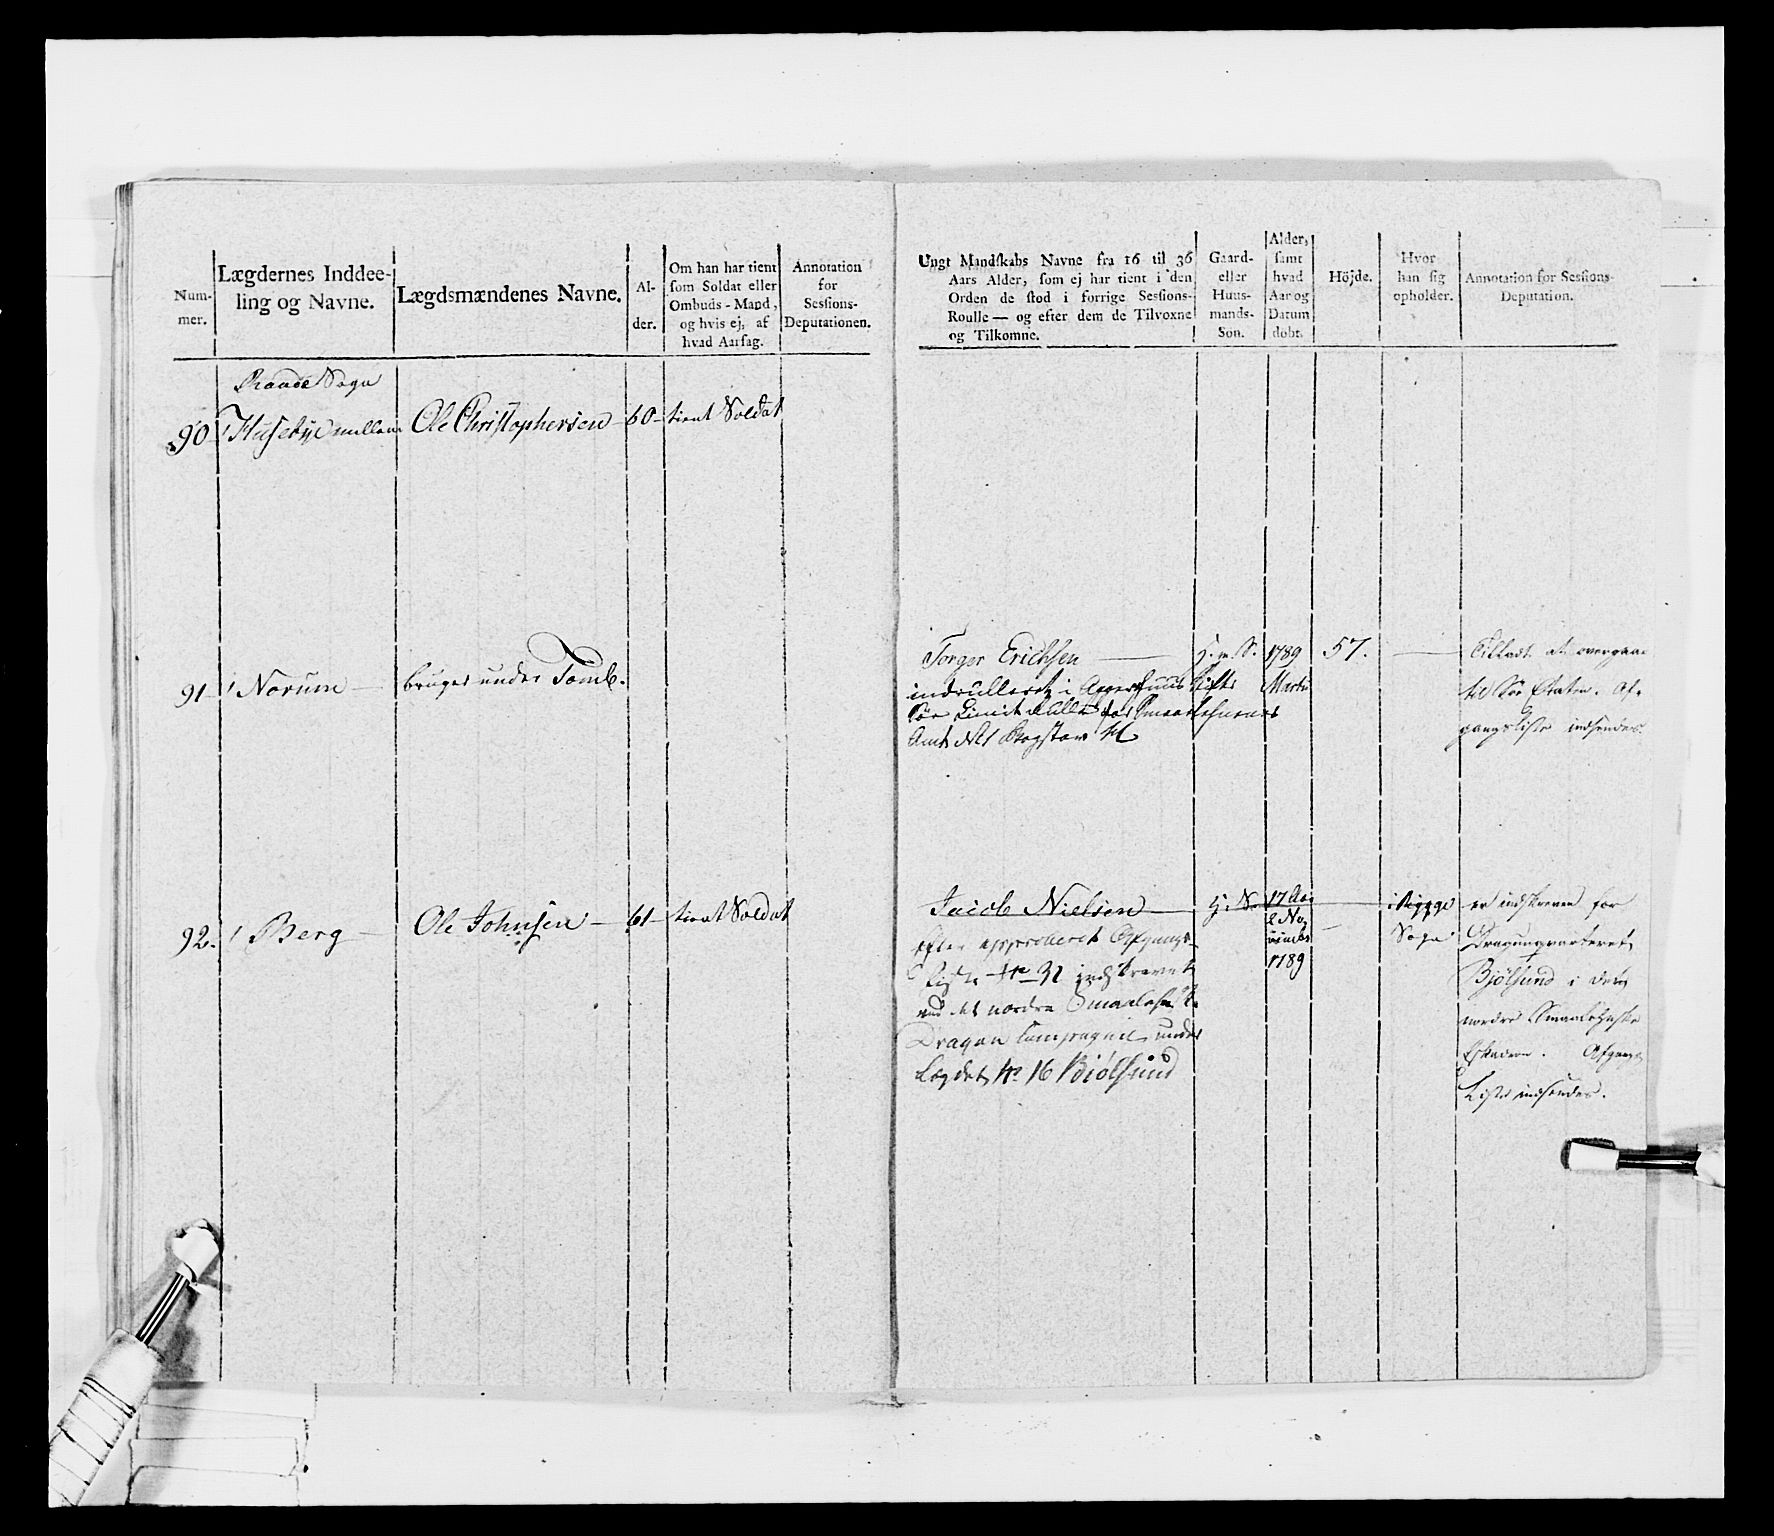 Num-
mer.
Lægdernes Inddee-
ling og Navne.
Lægdsmændenes Navne.
Al-
der.
Om han har tient
som Soldat eller
Ombuds-Mand,
og hvis ej, af
hvad Aarsag.
Annotation
for
Sessions-
Deputationen.
Raade Sogn
90 1 Husebye mellem Ole Christophersen 60 tient Soldat
91 1 Norum bruges under Tomb.
92. 1 Berg Ole Johnsen 61 tient Soldat
Ungt Mandskabs Navne fra 16 til 36
Aars Alder, som ej har tient i den
Orden de stod i forrige Sessions-
Roulle — og efter dem de Tilvoxne
og Tilkomne.
Gaard-
eller
Huus-
mands-
Søn.
Alder,
samt
hvad
Aar og
Datum
døbt.
Höjde.
Hvor
han sig
opholder.
Annotation for Sessions-
Deputation.
Torger Erichsen
indrulleret i Aggershuus Stifts
Søe Limit Rulle for Smaalehnenes
Amt
1789
Martii
57.
Tilladt at overgaae
til Søe Etaten. Af-
gangsliste indsendes.
Jacob Nielsen
efter approberet Afgangs-
Liste No 32 indskrevet
ved det nordre Smaalehnske
Dragon Compagnie under
Lægdet No 16 Biølsund
17 Aar
2 No-
vember
1789
i Rygge
Sogn
er indskreven for
Dragonqvarteret
Bjølsund i det
nordre Smaalehnske
Eskadron. Afgangs
Liste indsendes.